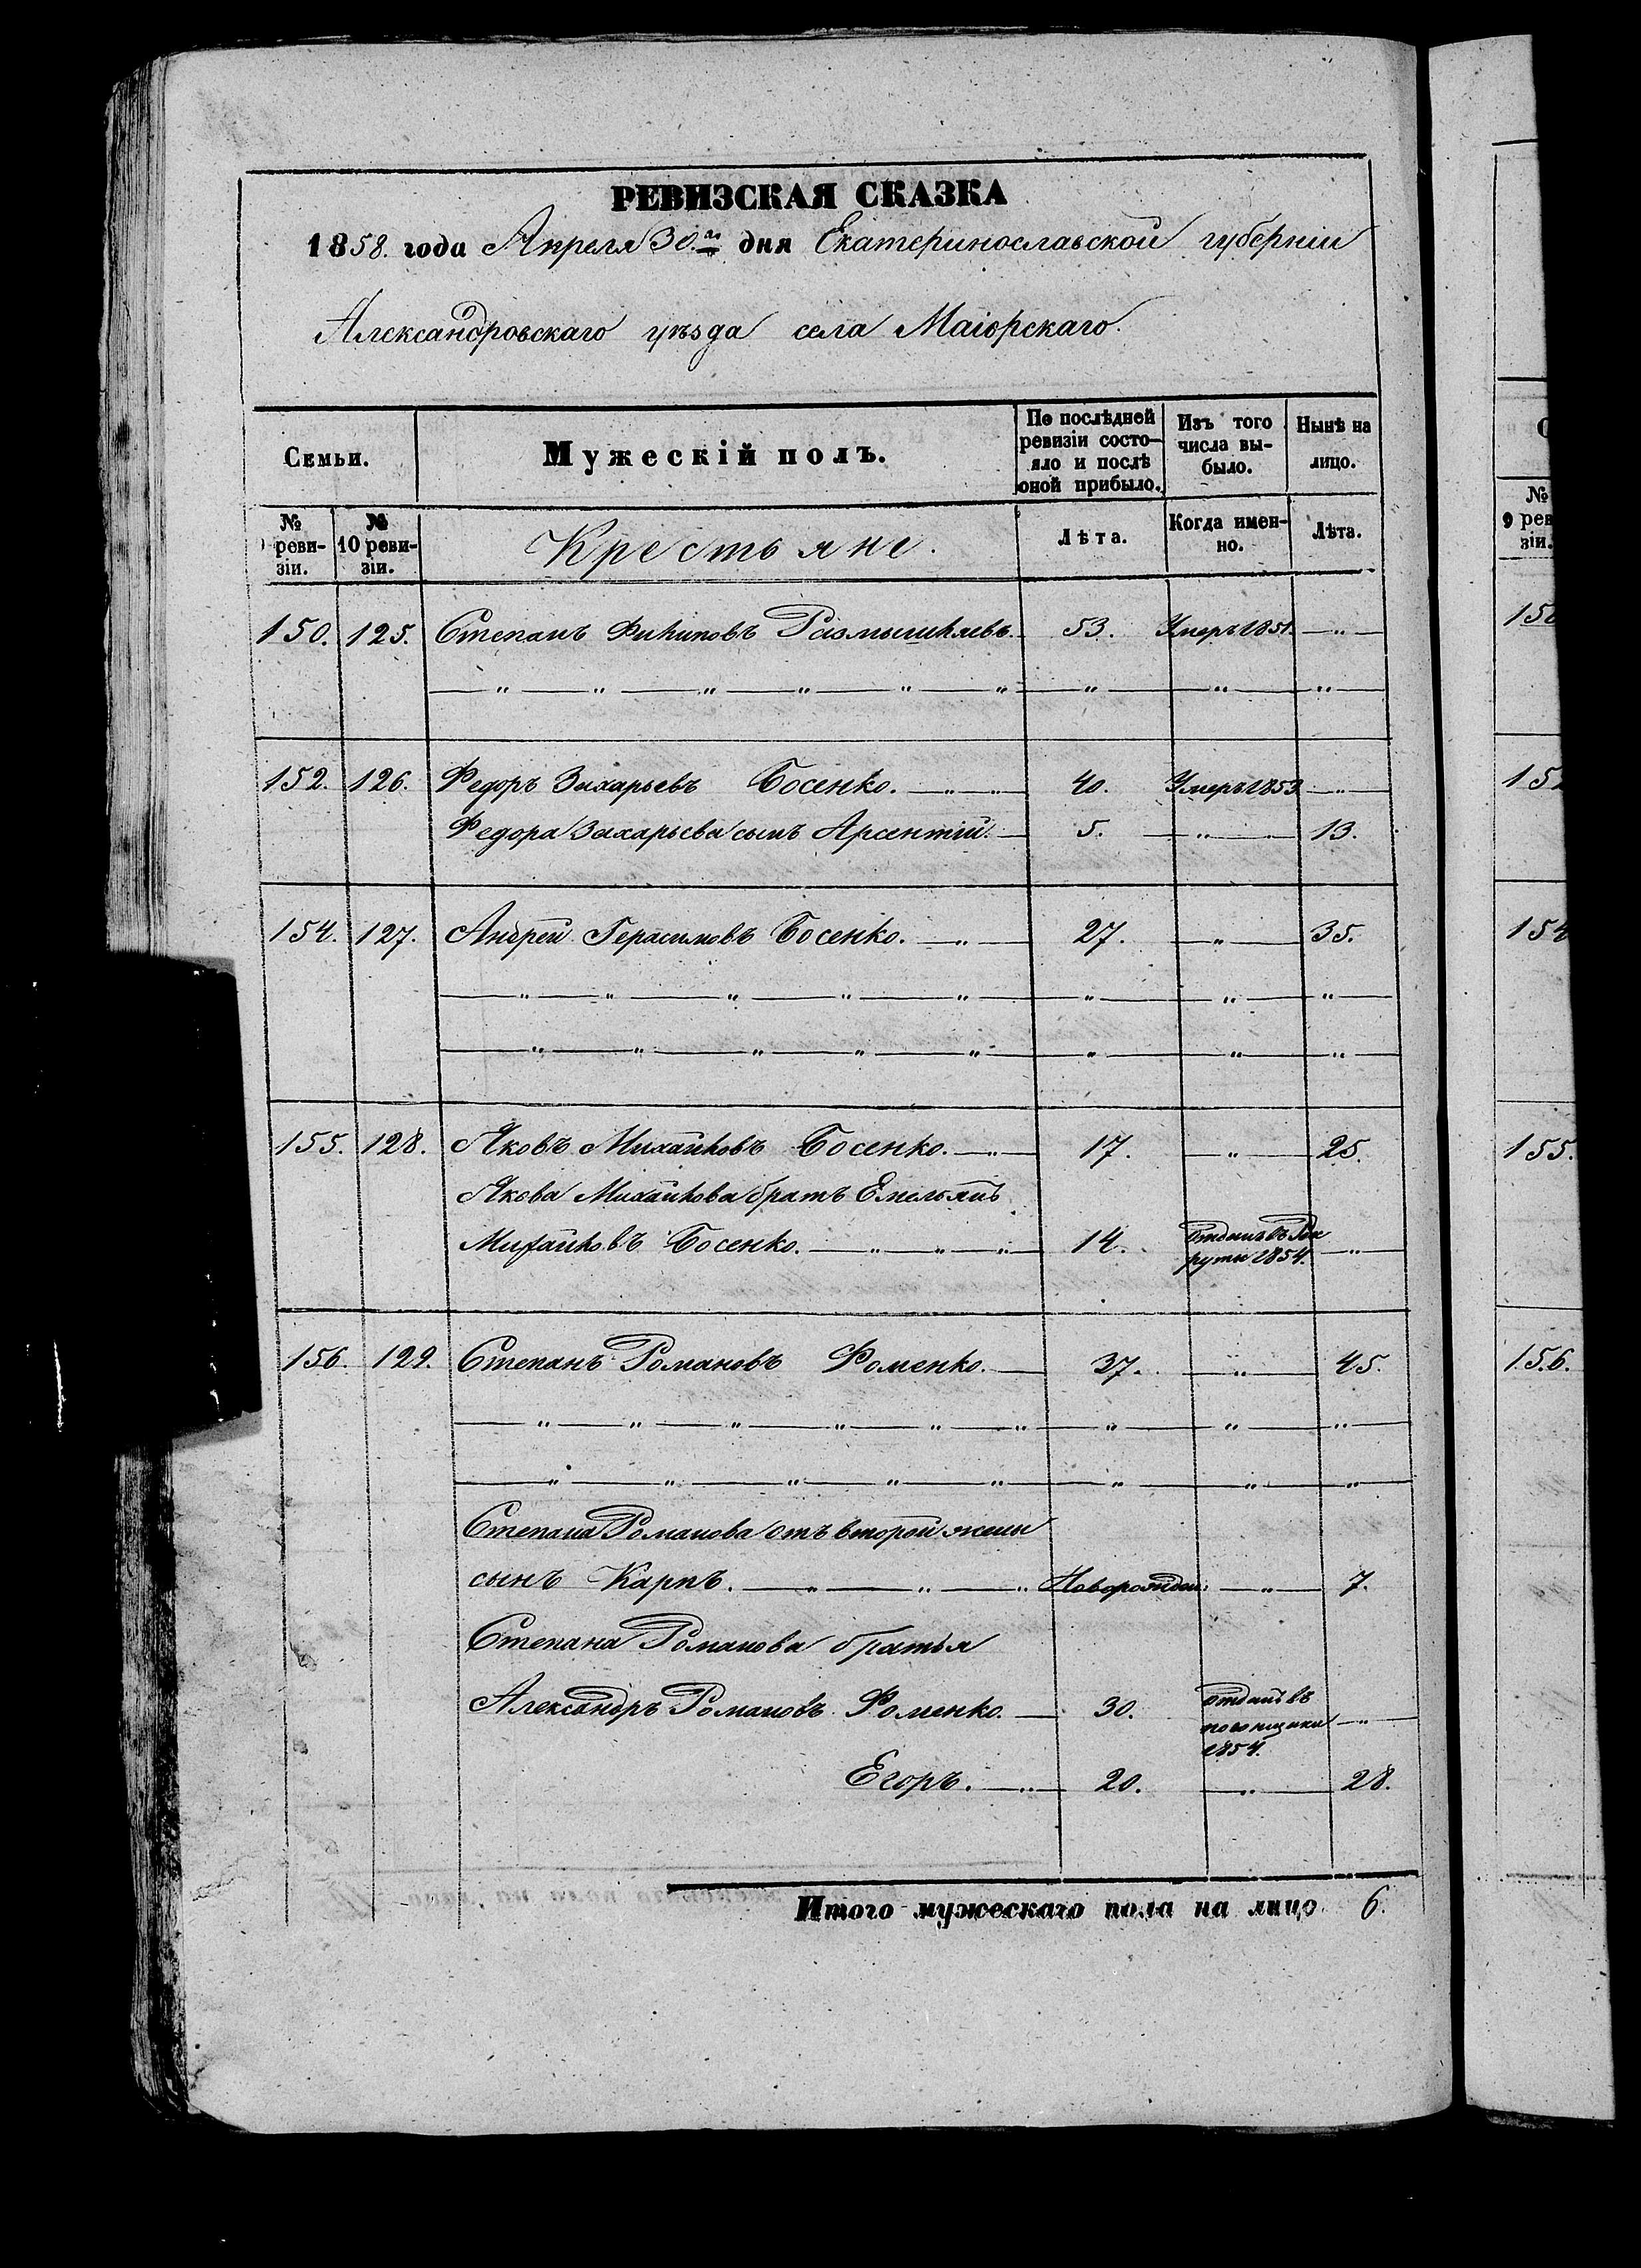 РЕВИЗСКАЯ СКАЗКА
1858. года Апреля 30.го дня Екатеринославской губерніи
Александровскаго уѣзда села Маіорскаго.
Семьи. Мужескій полъ. По послѣдней ревизіи состояло и послѣ оной прибыло. Изъ того числа выбыло. Нынѣ на лицо.
№ реви-зіи. № 10 реви-зіи. Крестьяне. Лѣта. Когда имен-но. Лѣта.
150. 125. Степанъ Филиповъ Размышляевъ. 53. Умеръ 1851. — " —
— " — " — " — " — " — " — " — " — " —
152. 126. Федоръ Захарьевъ Босенко. — " — " 40. Умеръ 1853 — " —
Федора Захарьева сынъ Арсентій. — 5. — " — 13.
154. 127. Андрей Герасимовъ Босенко. — " — 27. — " — 35.
— " — " — " — " — " — " — " — " —
— " — " — " — " — " — " — " — " —
155. 128. Яковъ Михайловъ Босенко. — " — 17. — " — 25.
Якова Михайлова братъ Емельянъ
Михайловъ Босенко. — " — " — " 14. Отданъ въ Рек
руты 1854. — " —
156. 129. Степанъ Романовъ Фоменко. — 37. — " — 45.
— " — " — " — " — " — " — " — " — " —
— " — " — " — " — " — " — " — " —
Степана Романова отъ второй жены
сынъ Карпъ. — " — " — " Новорожден: — " — 7.
Степана Романова братья
Александръ Романовъ Фоменко. — 30. отданъ въ
погонщики — " —
1854.
Егоръ. — " — 20. — " — 28.
Итого мужескаго пола на лицо 6.
№
9 рев
зіи.
150
152
154
155.
156.